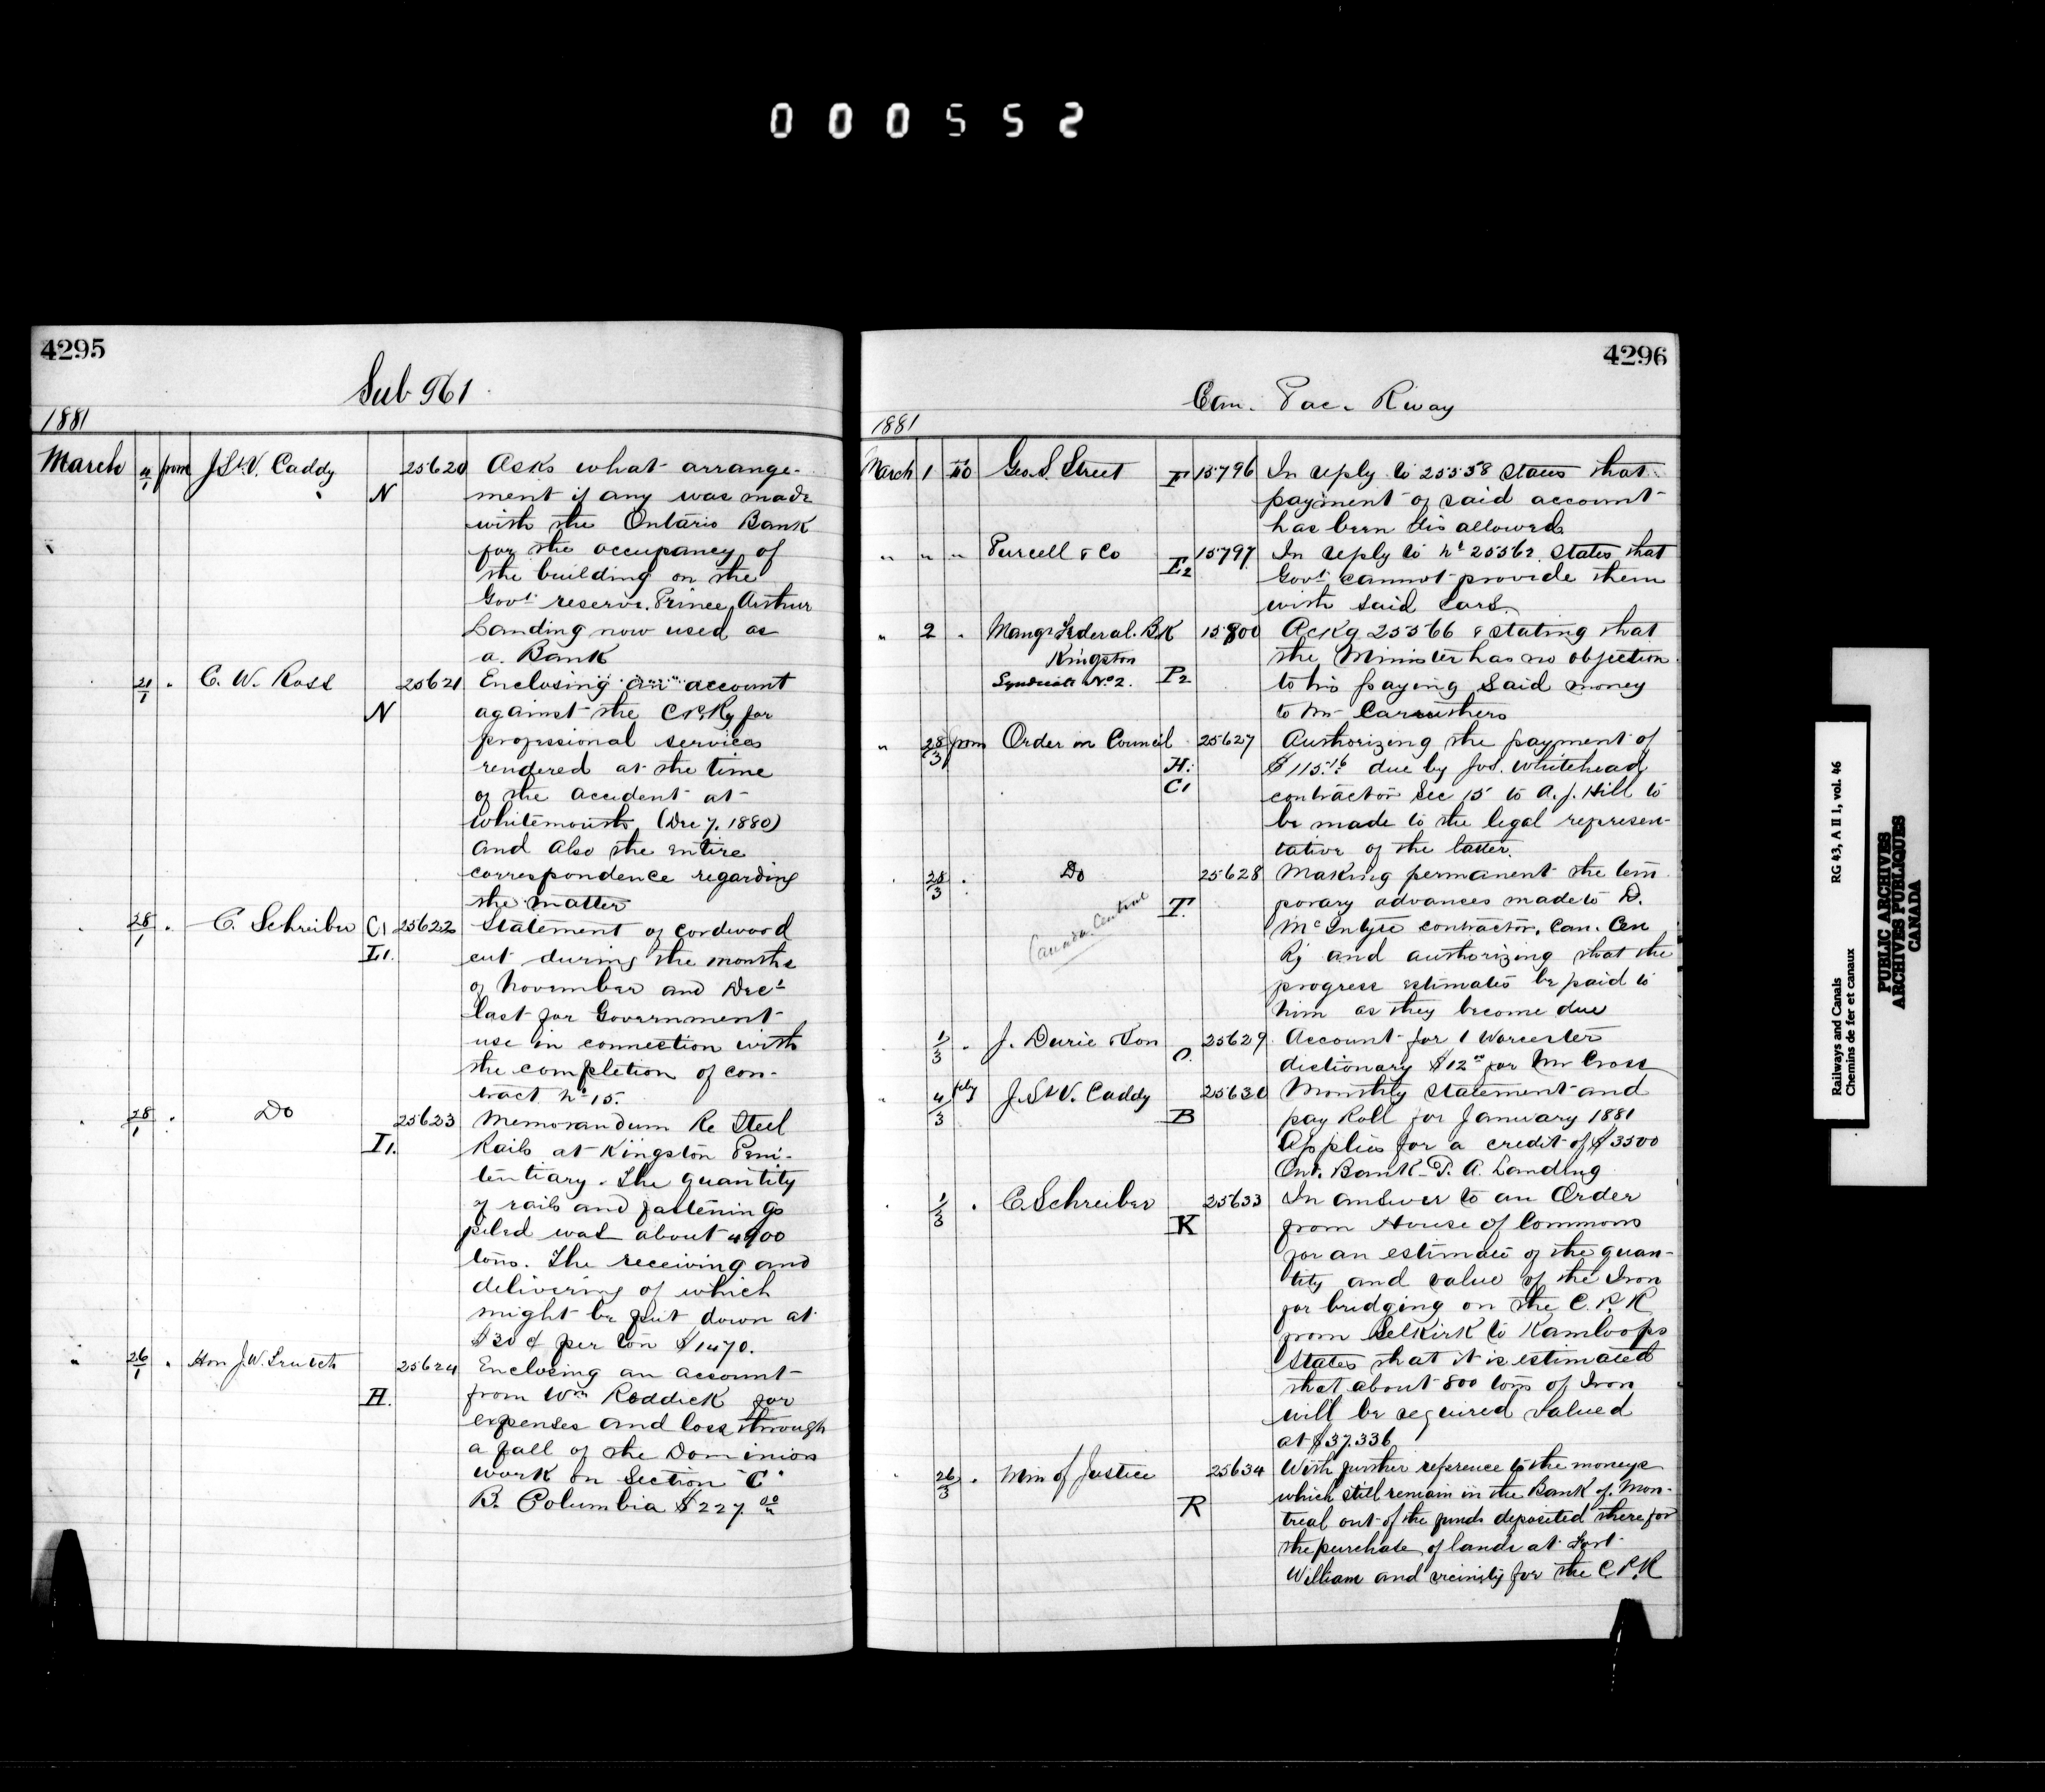 000552
4295
Sub 961
1881
March 4/1 from J. St. V. Caddy N 25620 Asks what arrange-
ment if any was made
with the Ontario Bank
for the occupancy of
the building on the
Govt reserve. Prince Arthur
Landing now used as
a Bank
" 21/1 " C. W. Ross N 25621 Enclosing an account
against the C.P.Ry for
professional services
rendered at the time
of the accident at
Whitemouth (Dec 7. 1880)
and also the entire
correspondence regarding
the matter
" 28/1 " C. Schreiber C1 I1. 25622 Statement of cordwood
cut during the months
of November and Decr
last for Government
use in connection with
the completion of con-
tract No 15.
" 28/1 " Do I1. 25623 Memorandum Re Steel
Rails at Kingston Peni-
tentiary. The quantity
of rails and fastenings
piled was about 4900
tons. The receiving and
delivering of which
might be put down at
$30 ¢ per ton $1470.
" 26/1 " Hon J. W. Trutch H. 25624 Enclosing an account
from Wm Roddick for
expenses and loss through
a fall of the Dominion
work on Section "C"
B. Columbia $227.00
4296
Can. Pac. Rway
1881
March 1 to Geo. S. Street F 15796 In reply to 25558 states that
payment of said account
has been dis allowed.
" " " Purcell & Co E2 15797 In reply to No 25562 states that
Govt cannot provide them
with said Cars.
" 2 " Mangr Federal. BK 15800 Ackg 25566 & stating that
Kingston the Minister has no objection
Syndicate No 2. P2 to his paying said money
to Mr Carruthers
" 28/3 from Order in Council 25627 Authorizing the payment of
H: $115.16 due by Jos. Whitehead
C1 contractor Sec 15 to A. J. Hill to
be made to the legal represen-
tative of the latter.
" 28/3 " Do 25628 Making permanent the tem
Canada Central T. porary advances made to D.
McIntyre contractor. Can. Cen
Ry and authorizing that the
progress estimates be paid to
him as they become due
" 1/3 " J. Durie & Son O. 25629 Account for 1 Worcester
dictionary $12.00 for Mr Cross
" 4/3 J. St. V. Caddy 25630 Monthly statement and
B pay Roll for January 1881
Applies for a credit of $3500
Ont. Bank P. A. Landing
" 1/3 " C. Schreiber 25633 In answer to an Order
K from House of Commons
for an estimate of the quan-
tity and value of the Iron
for bridging on the C. P. R
from Selkirk to Kamloops
States that it is estimated
that about 800 tons of Iron
will be required valued
at $37.336
" 26/3 " Min of Justice 25634 With further reference to the moneys
R which still remain in the Bank of Mon-
treal out of the funds deposited there for
the purchase of lands at Fort
William and vicinity for the C.P.R
Railways and Canals
Chemins de fer et canaux
RG 43, A II 1, vol. 46
PUBLIC ARCHIVES
ARCHIVES PUBLIQUES
CANADA